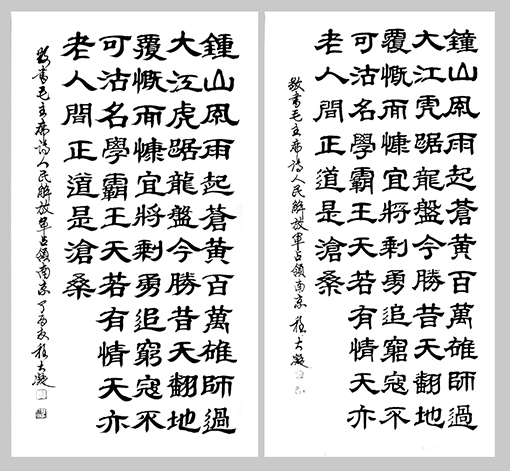 鍾山風雨起蒼黃百萬雄師過
大江虎踞龍盤今勝昔天翻地
覆慨而慷宜將剩勇追窮寇不
可沽名學霸王天若有情天亦
老人間正道是滄桑
敬書毛主席詩人民解放軍占領南京丁酉秋程大凝
鐘山風雨起蒼黃百萬雄師過
大江虎踞龍盤今勝昔天翻地
覆慨而慷宜將剩勇追窮寇不
可沽名學霸王天若有情天亦
老人間正道是滄桑
敬書毛主席詩人民解放軍占領南京程大凝